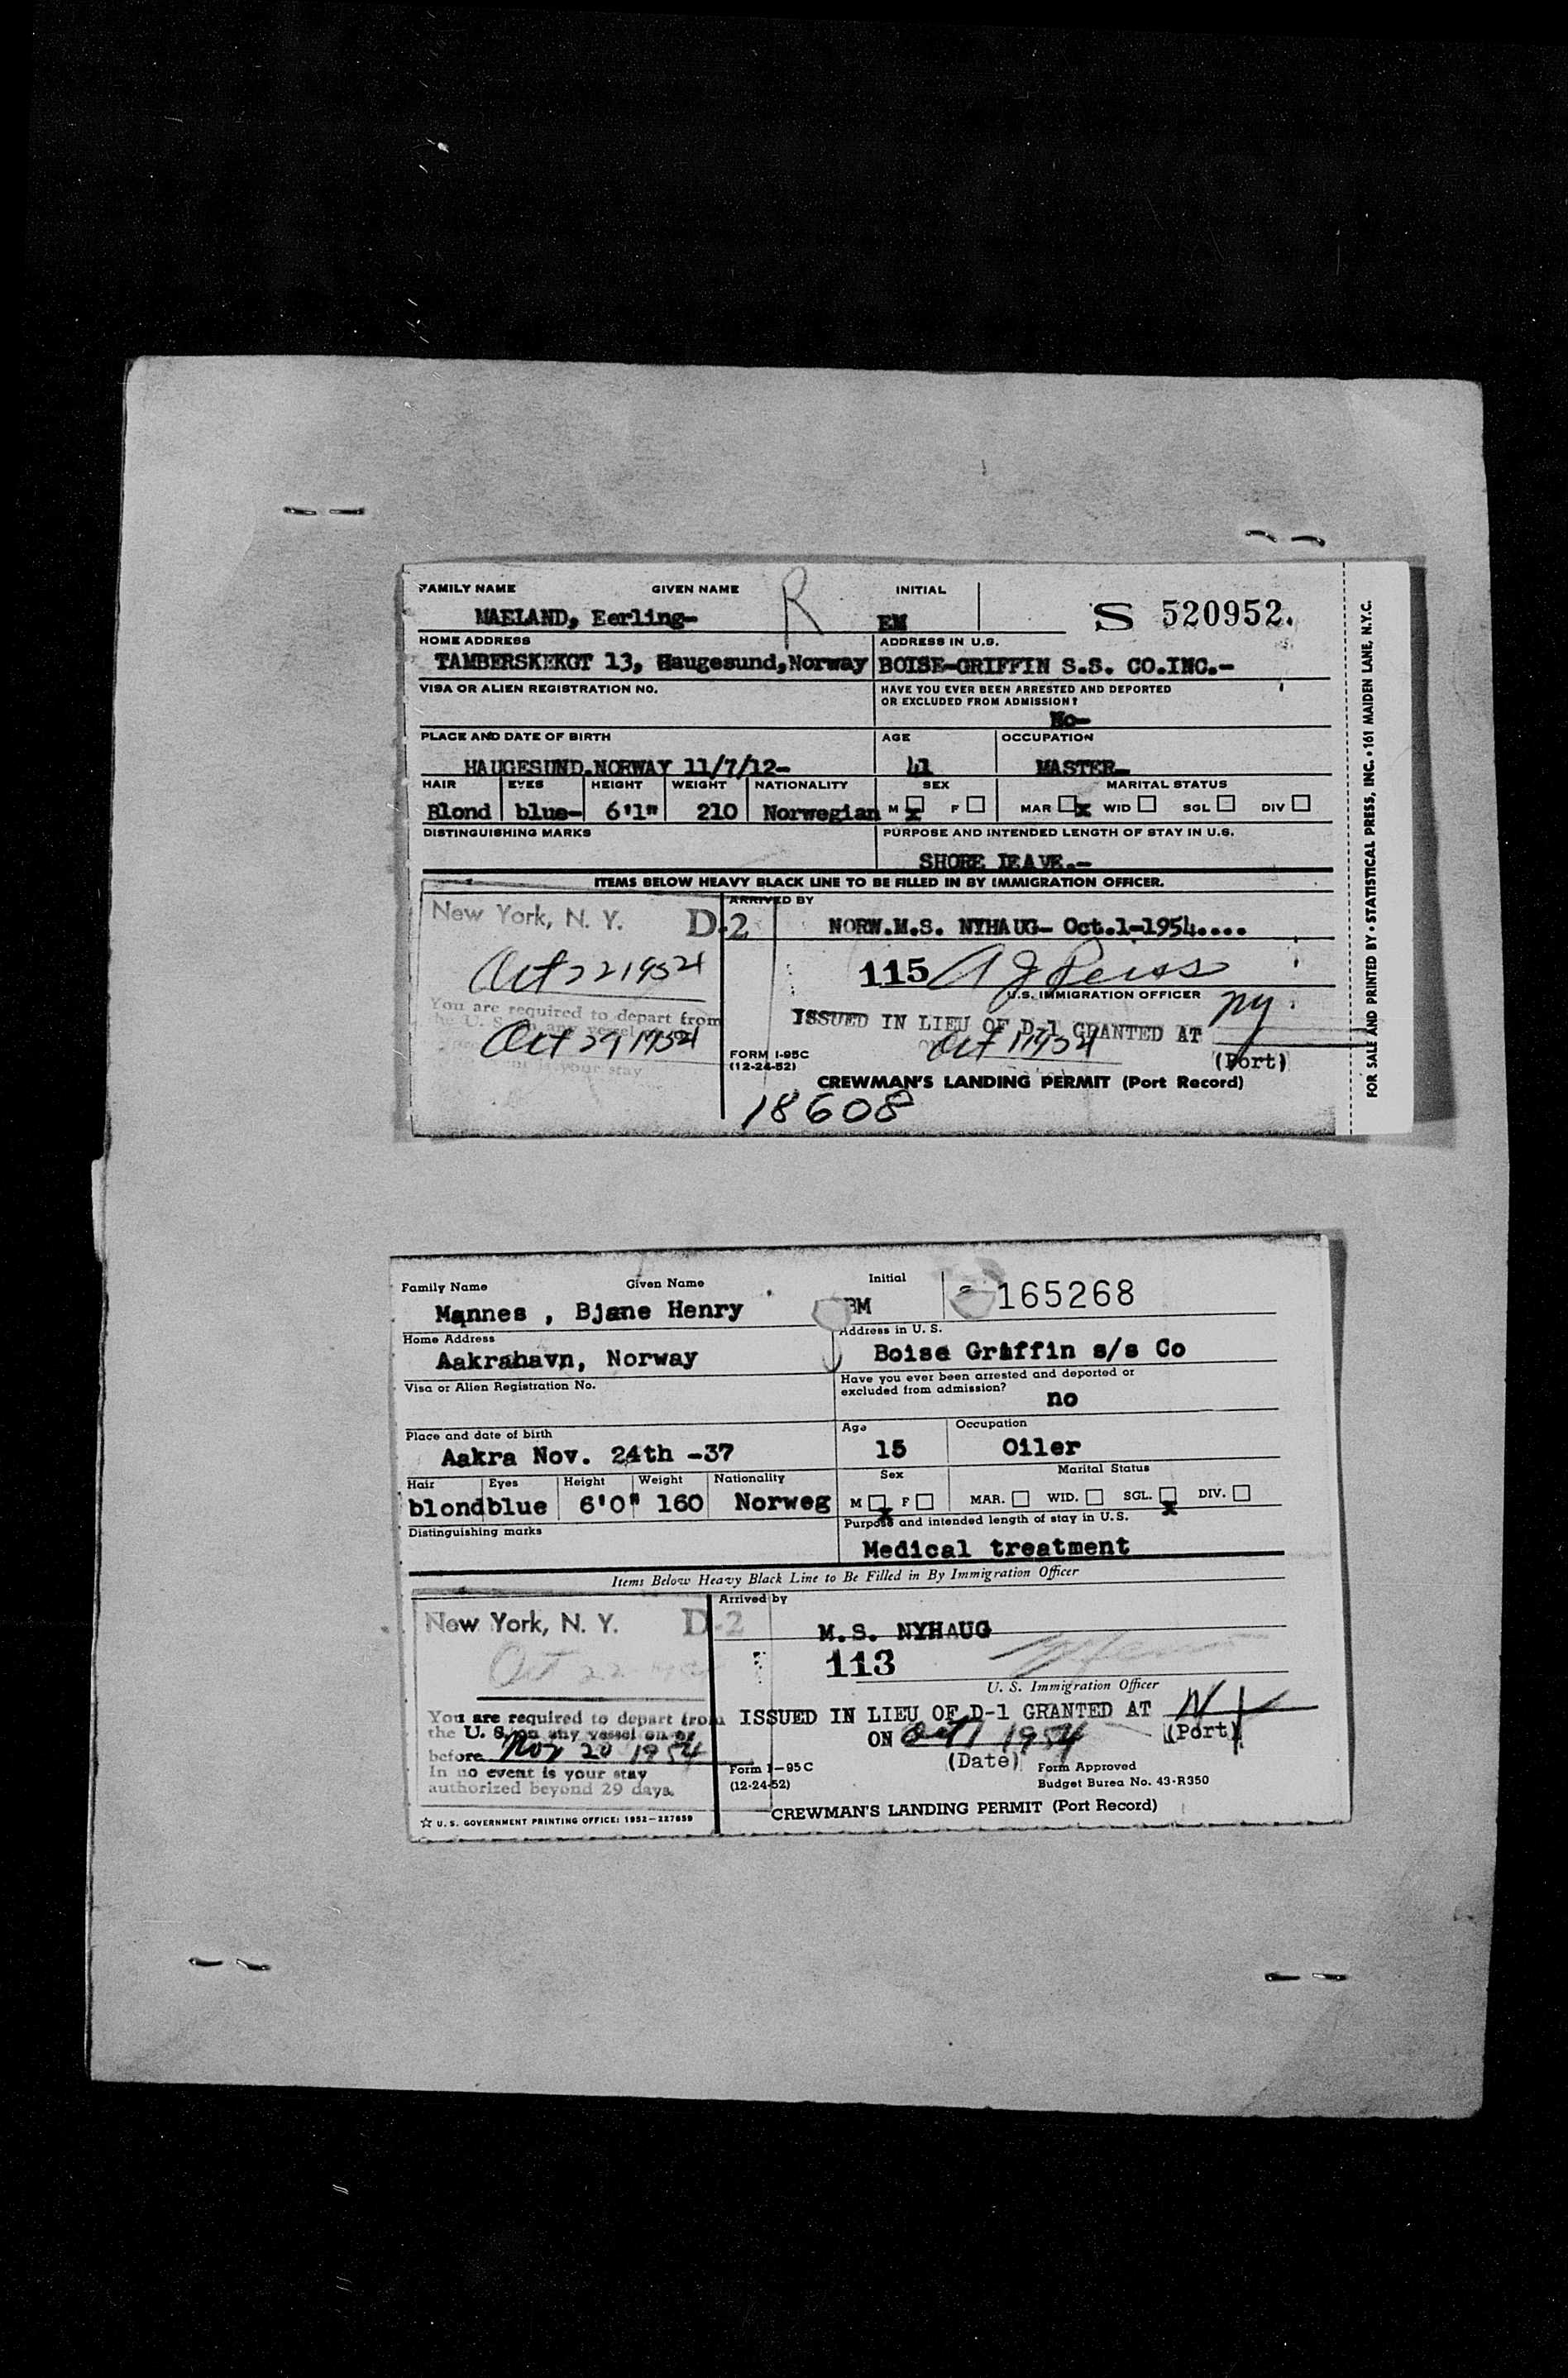 FAMILY NAME GIVEN NAME R INITIAL
MAELAND, Eerling- EM S 520952.
HOME ADDRESS ADDRESS IN U.S.
TAMBERSKEKGT 13, Haugesund,Norway BOISE-GRIFFIN S.S. CO.INC.-
VISA OR ALIEN REGISTRATION NO. HAVE YOU EVER BEEN ARRESTED AND DEPORTED
OR EXCLUDED FROM ADMISSION?
No-
PLACE AND DATE OF BIRTH AGE OCCUPATION
HAUGESUND.NORWAY 11/7/12- 41 MASTER-
HAIR EYES HEIGHT WEIGHT NATIONALITY SEX MARITAL STATUS
Blond blue- 6'1" 210 Norwegian M x F MAR x WID SGL DIV
DISTINGUISHING MARKS PURPOSE AND INTENDED LENGTH OF STAY IN U.S.
SHORE LEAVE.-
ITEMS BELOW HEAVY BLACK LINE TO BE FILLED IN BY IMMIGRATION OFFICER.
ARRIVED BY
New York, N. Y. D-2 NORW.M.S. NYHAUG- Oct.1-1954....
Oct 22 1954 115 A J Reiss
U.S. IMMIGRATION OFFICER
You are required to depart from
the U. S. on any vessel
Oct 29 1954
ISSUED IN LIEU OF D-1 GRANTED AT NY
Oct 1 1954 (Port)
is your stay
FORM I-95C
(12-24-52)
CREWMAN'S LANDING PERMIT (Port Record)
18608
FOR SALE AND PRINTED BY • STATISTICAL PRESS, INC. • 161 MAIDEN LANE, N.Y.C.
Family Name Given Name Initial
Mannes , Bjane Henry BM 165268
Home Address Address in U. S.
Aakrahavn, Norway Boise Griffin s/s Co
Visa or Alien Registration No. Have you ever been arrested and deported or
excluded from admission?
no
Place and date of birth Age Occupation
Aakra Nov. 24th -37 15 Oiler
Hair Eyes Height Weight Nationality Sex Marital Status
blond blue 6'0" 160 Norweg M x F MAR. WID. SGL. x DIV.
Distinguishing marks Purpose and intended length of stay in U.S.
Medical treatment
Items Below Heavy Black Line to Be Filled in By Immigration Officer
Arrived by
New York, N. Y. D-2 M.S. NYHAUG
Oct 22 113
U. S. Immigration Officer
You are required to depart from
the U. S. on any vessel on or
before Nov 20 1954
In no event is your stay
authorized beyond 29 days.
ISSUED IN LIEU OF D-1 GRANTED AT NY
ON Oct 1 1954 (Port)
(Date)
Form I-95C
(12-24-52)
Form Approved
Budget Burea No. 43-R350
CREWMAN'S LANDING PERMIT (Port Record)
☆ U. S. GOVERNMENT PRINTING OFFICE: 1952-227659